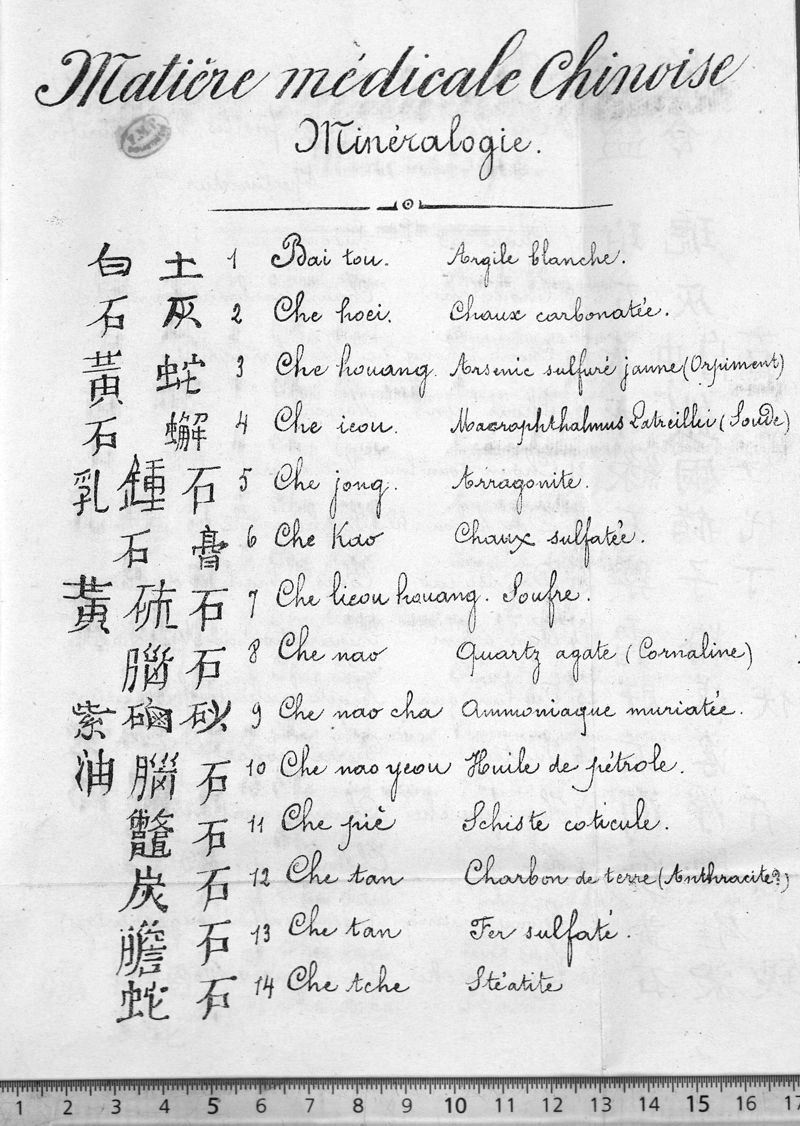 Matière médicale Chinoise
Minéralogie.
白 土 1 Bai tou. Argile blanche.
石 灰 2 Che hoei. Chaux carbonatée.
黃 蛇 3 Che houang. Arsenic sulfuré jaune (Orpiment)
石 蠏 4 Che ieou. Macrophthalmus Latreillei (Soude)
乳 鍾 石 5 Che jong. Arragonite.
石 膏 6 Che Kao Chaux sulfatée.
黃 硫 石 7 Che lieou houang. Soufre.
腦 石 8 Che nao Quartz agate (Cornaline)
紫 硇 砂 9 Che nao cha Ammoniaque muriatée.
油 腦 石 10 Che nao yeou Huile de pétrole.
鼈 石 11 Che piè Schiste coticule.
炭 石 12 Che tan Charbon de terre (Anthracite?)
膽 石 13 Che tan Fer sulfaté.
蛇 石 14 Che tche Stéatite
1 2 3 4 5 6 7 8 9 10 11 12 13 14 15 16 17